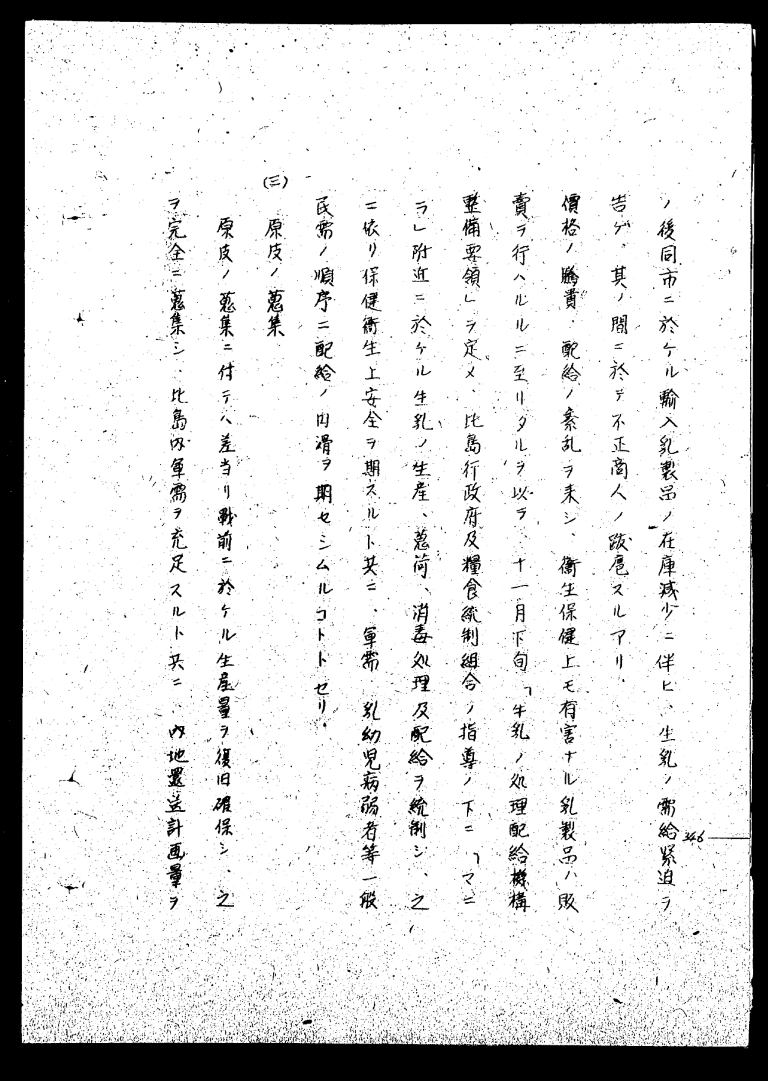 ノ後同市ニ於ケル輸入乳製品ノ在庫減少ニ伴ヒ、生乳ノ需給緊迫ヲ
告ゲ、其ノ間ニ於テ不正商人ノ跋扈スルアリ、
價格ノ騰貴、配給ノ紊乱ヲ来シ、衞生保健上モ有害ナル乳製品ハ販
賣ヲ行ハルルニ至リタルヲ以テ、十一月下旬「牛乳ノ処理配給機構
整備要領」ヲ定メ、比島行政府及糧食統制組合ノ指導ノ下ニ「マニ
ラ」附近ニ於ケル生乳ノ生産、蒐荷、消毒処理及配給ヲ統制シ、之
ニ依リ保健衞生上安全ヲ期スルト共ニ、軍需、乳幼児病弱者等一般
民需ノ順序ニ配給ノ円滑ヲ期セシムルコトトセリ、
(三) 原皮ノ蒐集
原皮ノ蒐集ニ付テハ差当リ戰前ニ於ケル生産量ヲ復旧確保シ、之
ヲ完全ニ蒐集シ、比島内軍需ヲ充足スルト共ニ、内地還送計画量ヲ
346